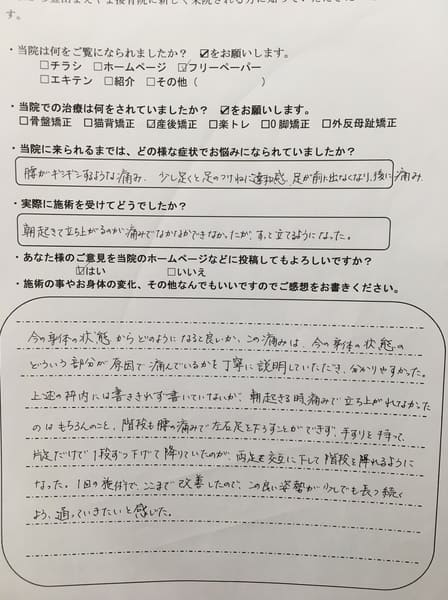 す。
・当院は何をご覧になられましたか? ☑をお願いします。
□チラシ □ホームページ ☑フリーペーパー
□エキテン □紹介 □その他( )
・当院での治療は何をされていましたか? ☑をお願いします。
□骨盤矯正 □猫背矯正 ☑産後矯正 □楽トレ □O脚矯正 □外反母趾矯正
・当院に来られるまでは、どの様な症状でお悩みになられていましたか?
腰がギシギシするような痛み、少し歩くと足のつけねに違和感、足が前に出なくなり、後に痛み
・実際に施術を受けてどうでしたか?
朝起きて立ち上がるのが痛みでなかなかできなかったが、すっと立てるようになった。
・あなた様のご意見を当院のホームページなどに投稿してもよろしいですか?
☑はい □いいえ
・施術の事やお身体の変化、その他なんでもいいですのでご感想をお書きください。
今の身体の状態からどのようになると良いか、この痛みは、今の身体の状態の
どういう部分が原因で痛んでいるかを丁寧に説明していただき、分かりやすかった。
上述の枠内には書ききれず書いていないが、朝起きる時痛みで立ち上がれなかった
のはもちろんのこと、階段も腰の痛みで左右足を下ろすことができず、手すりを持って、
片足だけで1段ずつ下げて降りていたが、両足を交互に下して階段を降れるように
なった。1回の施術で、ここまで改善したので、この良い姿勢が少しでも長つ続く
よう、通っていきたいと感じた。